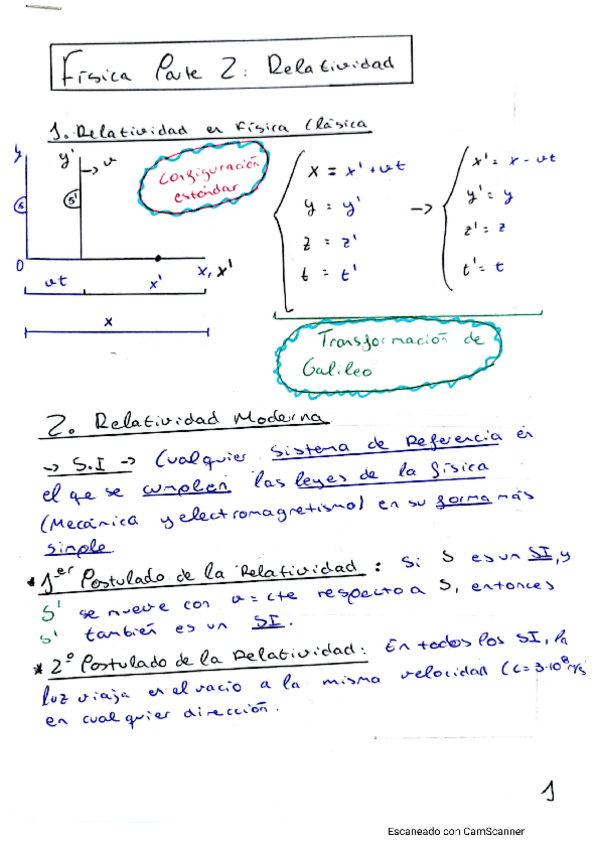 Física Parte 2: Relatividad
1. Relatividad en Física Clásica
y
y'
→ v
S
S'
Configuración
estándar
0
x, x'
vt
x'
x
x = x' + vt
y = y'
z = z'
t = t'
→
x' = x - vt
y' = y
z' = z
t' = t
Transformación de
Galileo
2. Relatividad Moderna
→ S.I → Cualquier Sistema de Referencia en
el que se cumplen las leyes de la física
(Mecánica y electromagetismo) en su forma más
simple.
* 1er Postulado de la Relatividad: Si S es un SI, y
S' se mueve con v = cte respecto a S, entonces
S' también es un SI.
* 2º Postulado de la Relatividad: En todos los SI, la
luz viaja en el vacío a la misma velocidad (c=3·10⁸m/s
en cualquier dirección.
1
Escaneado con CamScanner